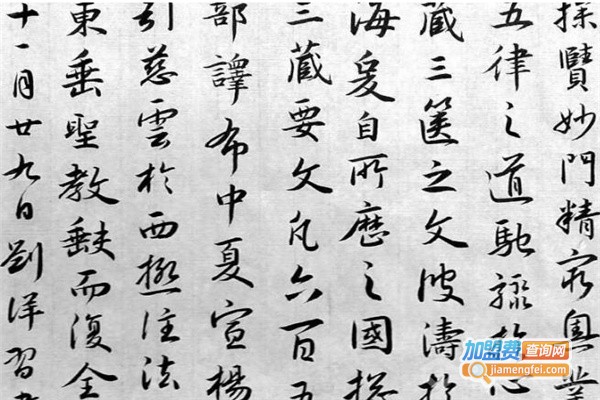 探賾妙門精窮奧業
五律之道馳驟於心
藏三篋之文波濤於
海爰自所歷之國總
三藏要文凡六百五
部譯布中夏宣楊
引慈雲於西極注法
東垂聖教缺而復全
十一月廿九日劉洋習
加盟费查询网
jiamengfei.com